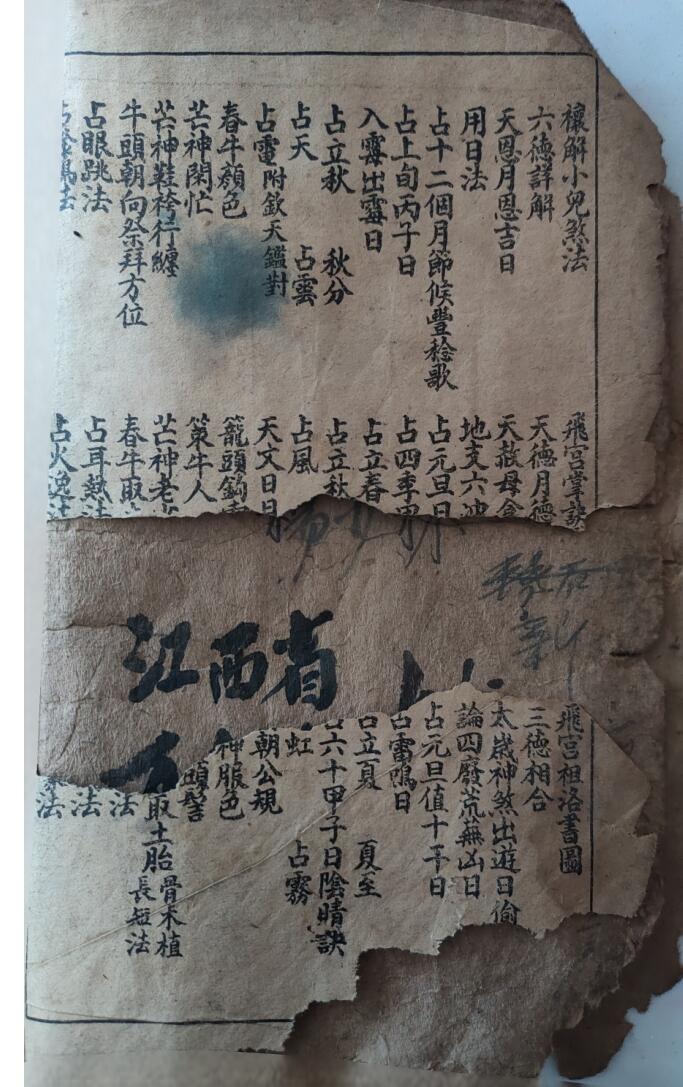 禳解小兒煞法
六德詳解
天恩月恩吉日
用日法
占十二個月節候豐稔歌
占上旬丙子日
入霉出霉日
占立秋 秋分
占天 占雲
占電附欽天鑑對
春牛顏色
芒神閑忙
芒神鞋袴行纏
牛頭朝向祭拜方位
占眼跳法
飛宮掌訣
天德月德
天赦母倉
地支六
占元旦日
占四季甲
占立春
占立秋
占風
天文日
籠頭
策牛人
芒神老
春牛取
占耳熱法
占火逸法
江西省
新
飛宮祖洛書圖
三德相合
太歲神煞出遊日
論四廢荒蕪凶日
占元旦值十干日
占雷鳴日
占立夏 夏至
占六十甲子日陰晴訣
虹 占霧
朝公規
神服色
頭髻
取土胎骨木植長短法
法
法
法